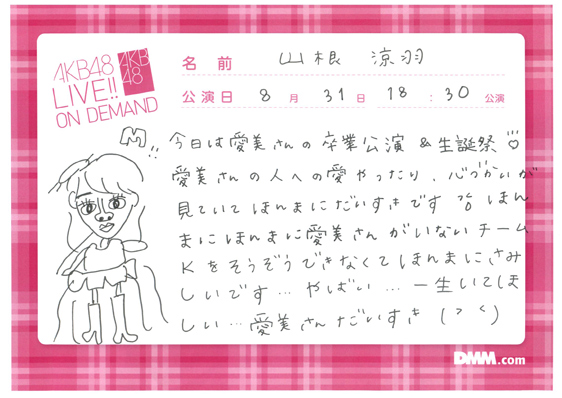 AKB48
LIVE!!
ON DEMAND
AKB
48
名前 山根 涼羽
公演日 8月31日 18:30 公演
M!!
今日は愛美さんの卒業公演&生誕祭♡
愛美さんの人への愛やったり、心づかいが
見ていてほんまにだいすきです ほん
まにほんまに愛美さんがいないチーム
Kをそうぞうできなくてほんまにさみ
しいです…やばい…一生いてほ
しい…愛美さんだいすき
DMM.com